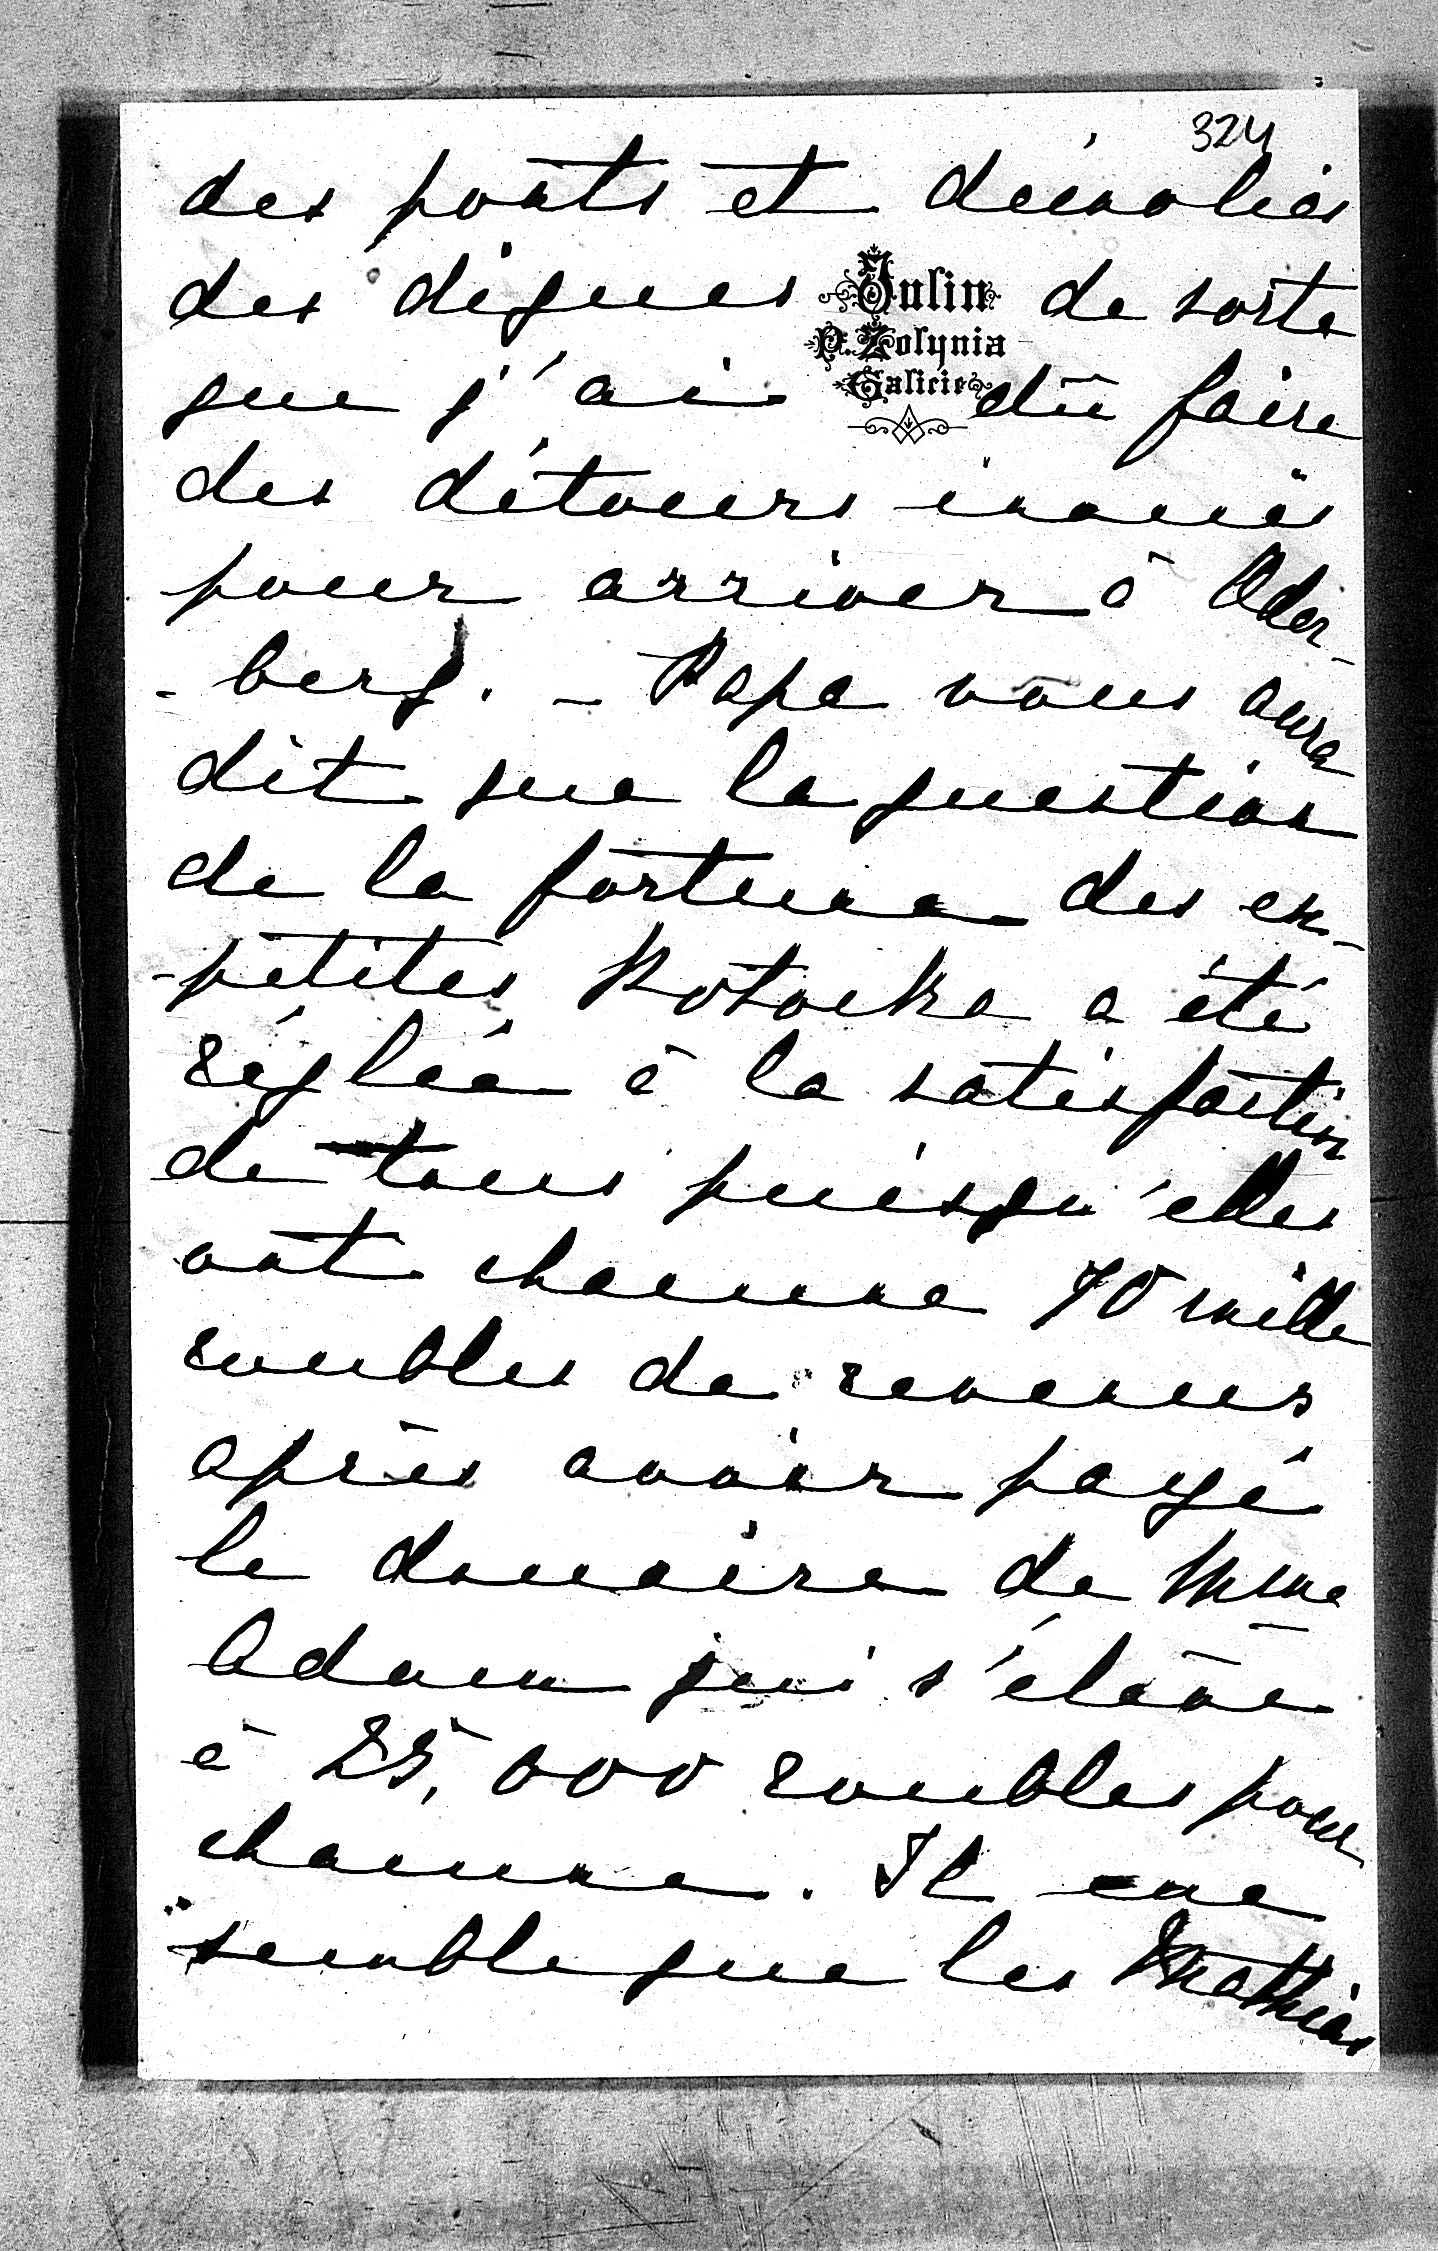 324
des ponts et démolies
des digues de sorte
Julin
P. Zolynia
Galicie
que j'ai dû faire
des détours inouïs
pour arriver à Oder-
-berg. - Papa vous aura
dit que la question
de la fortune des ex-
-petites Potocka a été
réglée à la satisfaction
de tous puisqu'elles
ont chacune 70 mille
roubles de revenus
après avoir payé
le douaire de Mme
Adam qui s'élève
à 25,000 roubles pour
chacune. Il me
semble que les Mathias